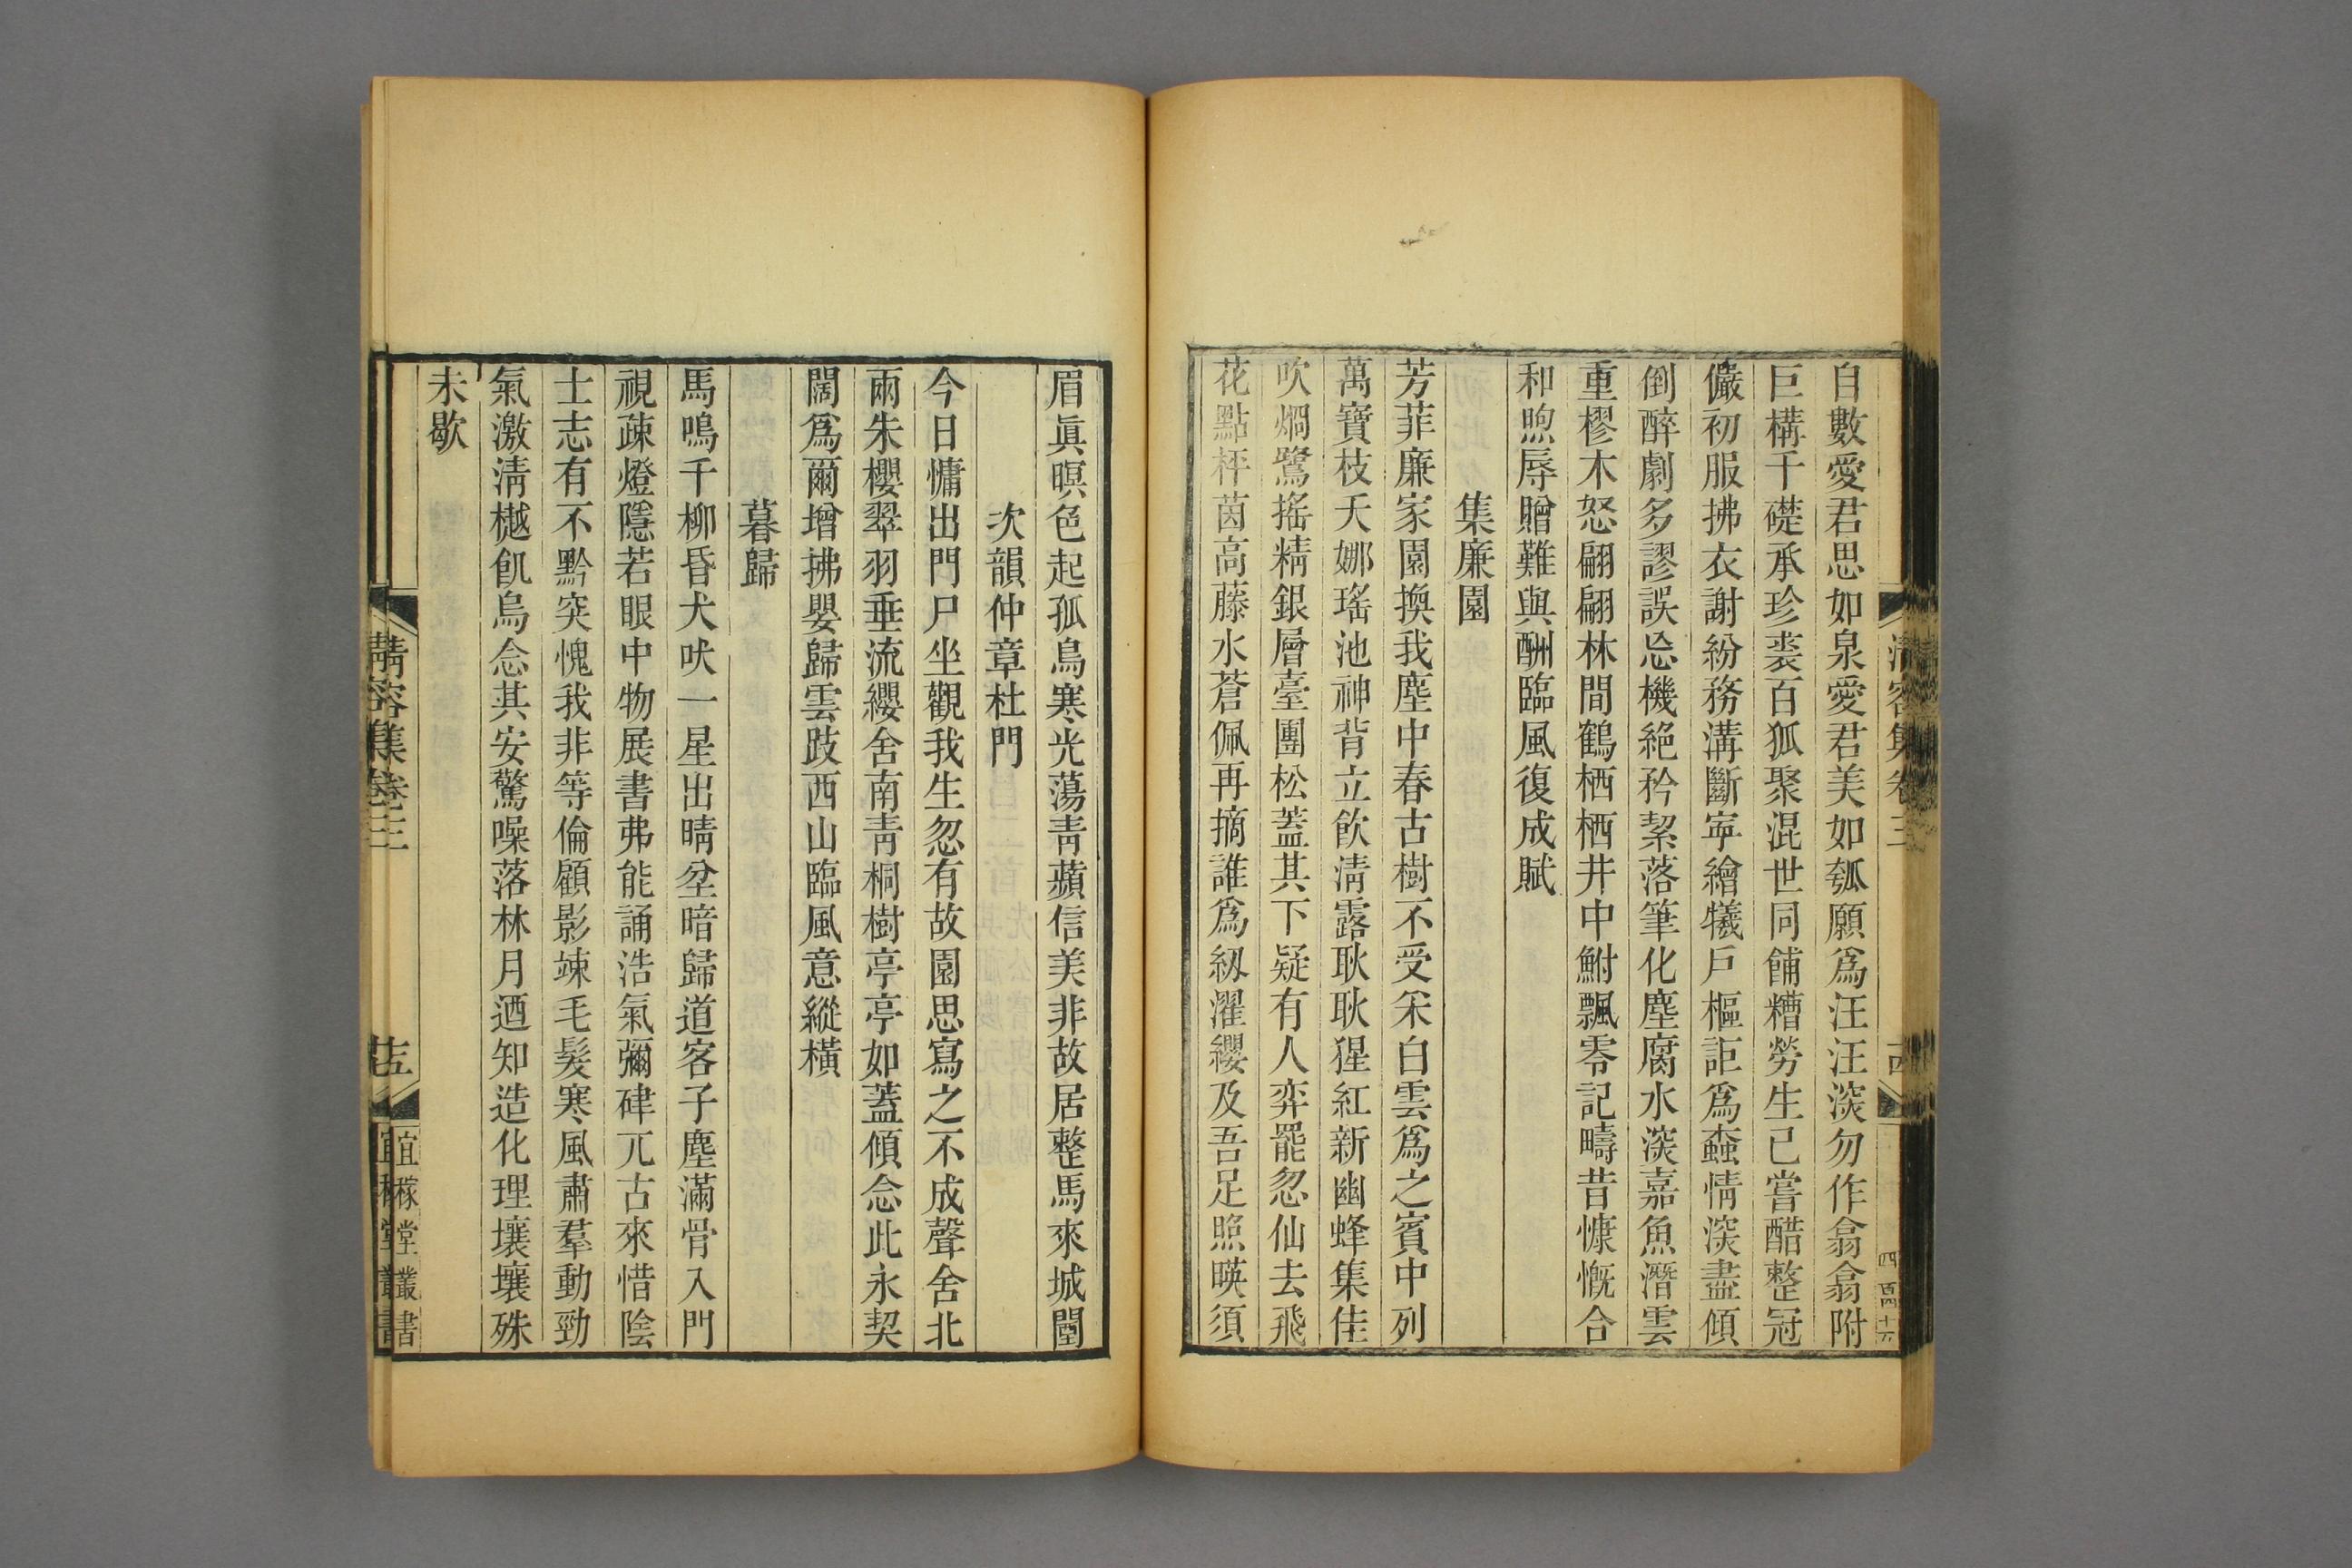 清容集卷三
自數愛君思如泉愛君美如瓠願爲汪汪淡勿作翕翕附
巨構千礎承珍裘百狐聚混世同餔糟勞生已嘗醋整冠
儼初服拂衣謝紛務溝斷寕繪犧戶樞詎爲蠧情深盡傾
倒醉劇多謬誤忘機絶矜絜落筆化塵腐水深嘉魚潛雲
重樛木怒翩翩林間鶴栖栖井中鮒飄零記疇昔慷慨合
和煦辱贈難與酬臨風復成賦
集廉園
芳菲廉家園換我塵中春古樹不受采白雲爲之賓中列
萬寶枝夭娜瑤池神背立飮淸露耿耿猩紅新幽蜂集佳
吹燗鷺搖精銀層臺團松蓋其下疑有人弈罷忽仙去飛
花點枰茵高藤水蒼佩再摘誰爲紉濯纓及吾足照暎須
眉眞暝色起孤鳥寒光蕩靑蘋信美非故居整馬來城闉
次韻仲章杜門
今日慵出門尸坐觀我生忽有故園思寫之不成聲舍北
兩朱櫻翠羽垂流纓舍南靑桐樹亭亭如蓋傾念此永契
闊爲爾增拂嬰歸雲跂西山臨風意縱橫
暮歸
馬鳴千柳昏犬吠一星出晴坌暗歸道客子塵滿骨入門
視疎燈隱若眼中物展書弗能誦浩氣彌硉兀古來惜陰
士志有不黔突愧我非等倫顧影竦毛髮寒風肅羣動勁
氣激淸樾飢烏念其安驚噪落林月迺知造化理壤壤殊
未歇
清容集卷三
五
宜稼堂叢書